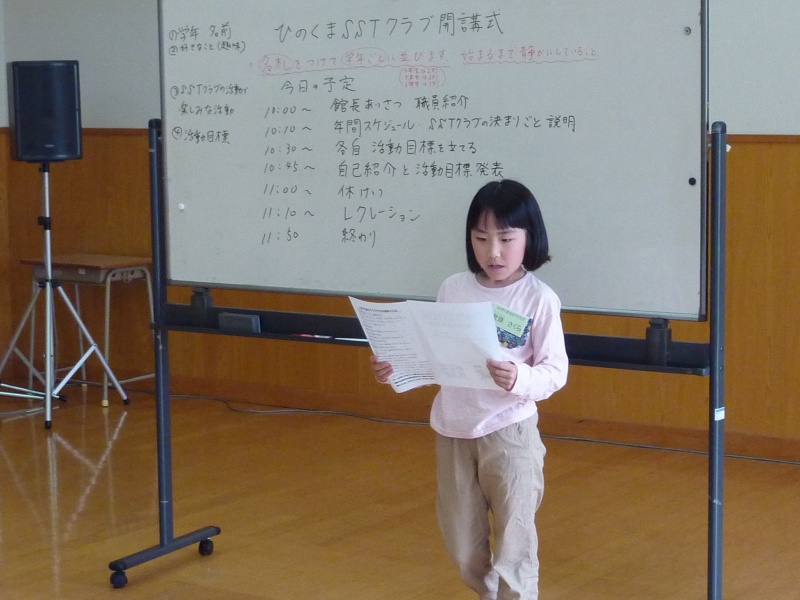 ひのくまSSTクラブ開講式
①学年 名前
②好きなこと(趣味)
③SSTクラブの活動で
楽しみな活動
④活動目標
名札をつけて学年ごとに並びます。始まるまで静かにしていること。
今日の予定
10:00〜 館長あいさつ 職員紹介
10:10〜 年間スケジュール・SSTクラブの決まりごと 説明
10:30〜 各自 活動目標を立てる
10:45〜 自己紹介と活動目標発表
11:00〜 休けい
11:10〜 レクレーション
11:50 終わり